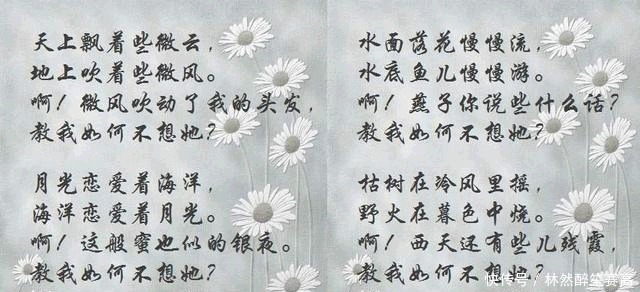 天上飘着些微云，
地上吹着些微风。
啊！微风吹动了我的头发，
教我如何不想她？
月光恋爱着海洋，
海洋恋爱着月光。
啊！这般蜜也似的银夜。
教我如何不想她？
水面落花慢慢流，
水底鱼儿慢慢游。
啊！燕子你说些什么话？
教我如何不想她？
枯树在冷风里摇，
野火在暮色中烧。
啊！西天还有些儿残霞，
教我如何不想她？
快传号／林然醉笙赛高